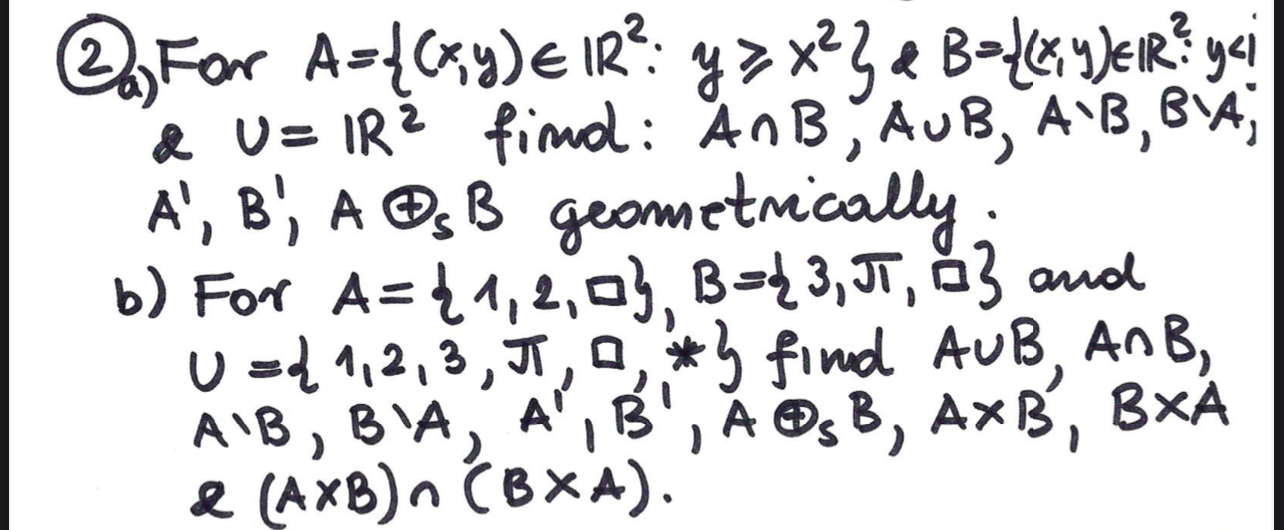 ② a) For A={(x,y)∈ℝ²: y ≥ x²} & B={(x,y)∈ℝ²: y<1
& U=ℝ² find: A∩B, A∪B, A∖B, B∖A,
A', B', A ⊕ₛ B geometrically.
b) For A={1,2,□}, B={3,π,□} and
U={1,2,3,π,□,*} find A∪B, A∩B,
A∖B, B∖A, A', B', A ⊕ₛ B, A×B, B×A
& (A×B)∩(B×A).